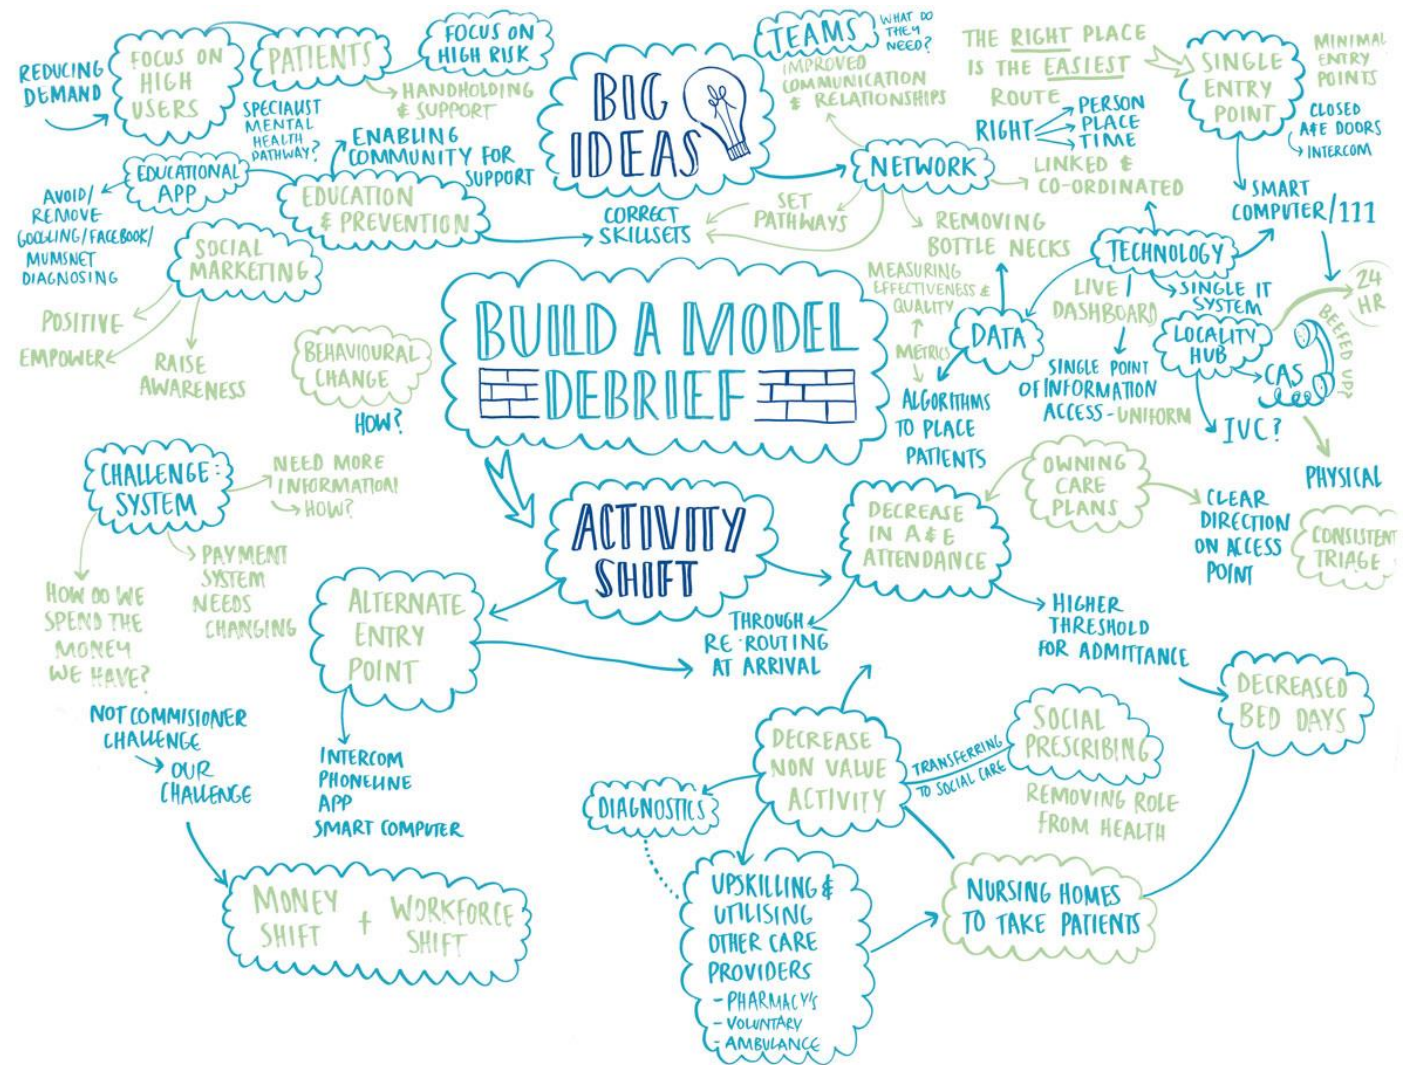 REDUCING
DEMAND
FOCUS ON
HIGH
USERS
PATIENTS
FOCUS ON
HIGH RISK
HANDHOLDING
& SUPPORT
SPECIALIST
MENTAL
HEALTH
PATHWAY?
ENABLING
COMMUNITY FOR
SUPPORT
EDUCATIONAL
APP
AVOID/
REMOVE
GOOGLING/FACEBOOK/
MUMSNET
DIAGNOSING
EDUCATION
& PREVENTION
SOCIAL
MARKETING
POSITIVE
EMPOWER
RAISE
AWARENESS
BIG
IDEAS
TEAMS
WHAT DO
THEY
NEED?
IMPROVED
COMMUNICATION
& RELATIONSHIPS
NETWORK
CORRECT
SKILLSETS
SET
PATHWAYS
REMOVING
BOTTLE NECKS
LINKED &
CO-ORDINATED
THE RIGHT PLACE
IS THE EASIEST
ROUTE
RIGHT
PERSON
PLACE
TIME
SINGLE
ENTRY
POINT
MINIMAL
ENTRY
POINTS
CLOSED
A&E DOORS
INTERCOM
SMART
COMPUTER/111
TECHNOLOGY
LIVE
DASHBOARD
SINGLE IT
SYSTEM
DATA
MEASURING
EFFECTIVENESS &
QUALITY
METRICS
ALGORITHMS
TO PLACE
PATIENTS
SINGLE POINT
OF INFORMATION
ACCESS - UNIFORM
LOCALITY
HUB
24
HR
CAS
BEEFED UP?
IVC?
PHYSICAL
BUILD A MODEL
DEBRIEF
BEHAVIOURAL
CHANGE
HOW?
CHALLENGE:
SYSTEM
NEED MORE
INFORMATION!
HOW?
PAYMENT
SYSTEM
NEEDS
CHANGING
HOW DO WE
SPEND THE
MONEY
WE HAVE?
NOT COMMISIONER
CHALLENGE
OUR
CHALLENGE
MONEY
SHIFT
+
WORKFORCE
SHIFT
ACTIVITY
SHIFT
ALTERNATE
ENTRY
POINT
INTERCOM
PHONELINE
APP
SMART COMPUTER
THROUGH
RE-ROUTING
AT ARRIVAL
DECREASE
IN A&E
ATTENDANCE
OWNING
CARE
PLANS
CLEAR
DIRECTION
ON ACCESS
POINT
CONSISTENT
TRIAGE
HIGHER
THRESHOLD
FOR ADMITTANCE
DECREASED
BED DAYS
DECREASE
NON VALUE
ACTIVITY
TRANSFERRING
TO SOCIAL CARE
SOCIAL
PRESCRIBING
REMOVING ROLE
FROM HEALTH
DIAGNOSTICS
UPSKILLING &
UTILISING
OTHER CARE
PROVIDERS
- PHARMACY'S
- VOLUNTARY
- AMBULANCE
NURSING HOMES
TO TAKE PATIENTS